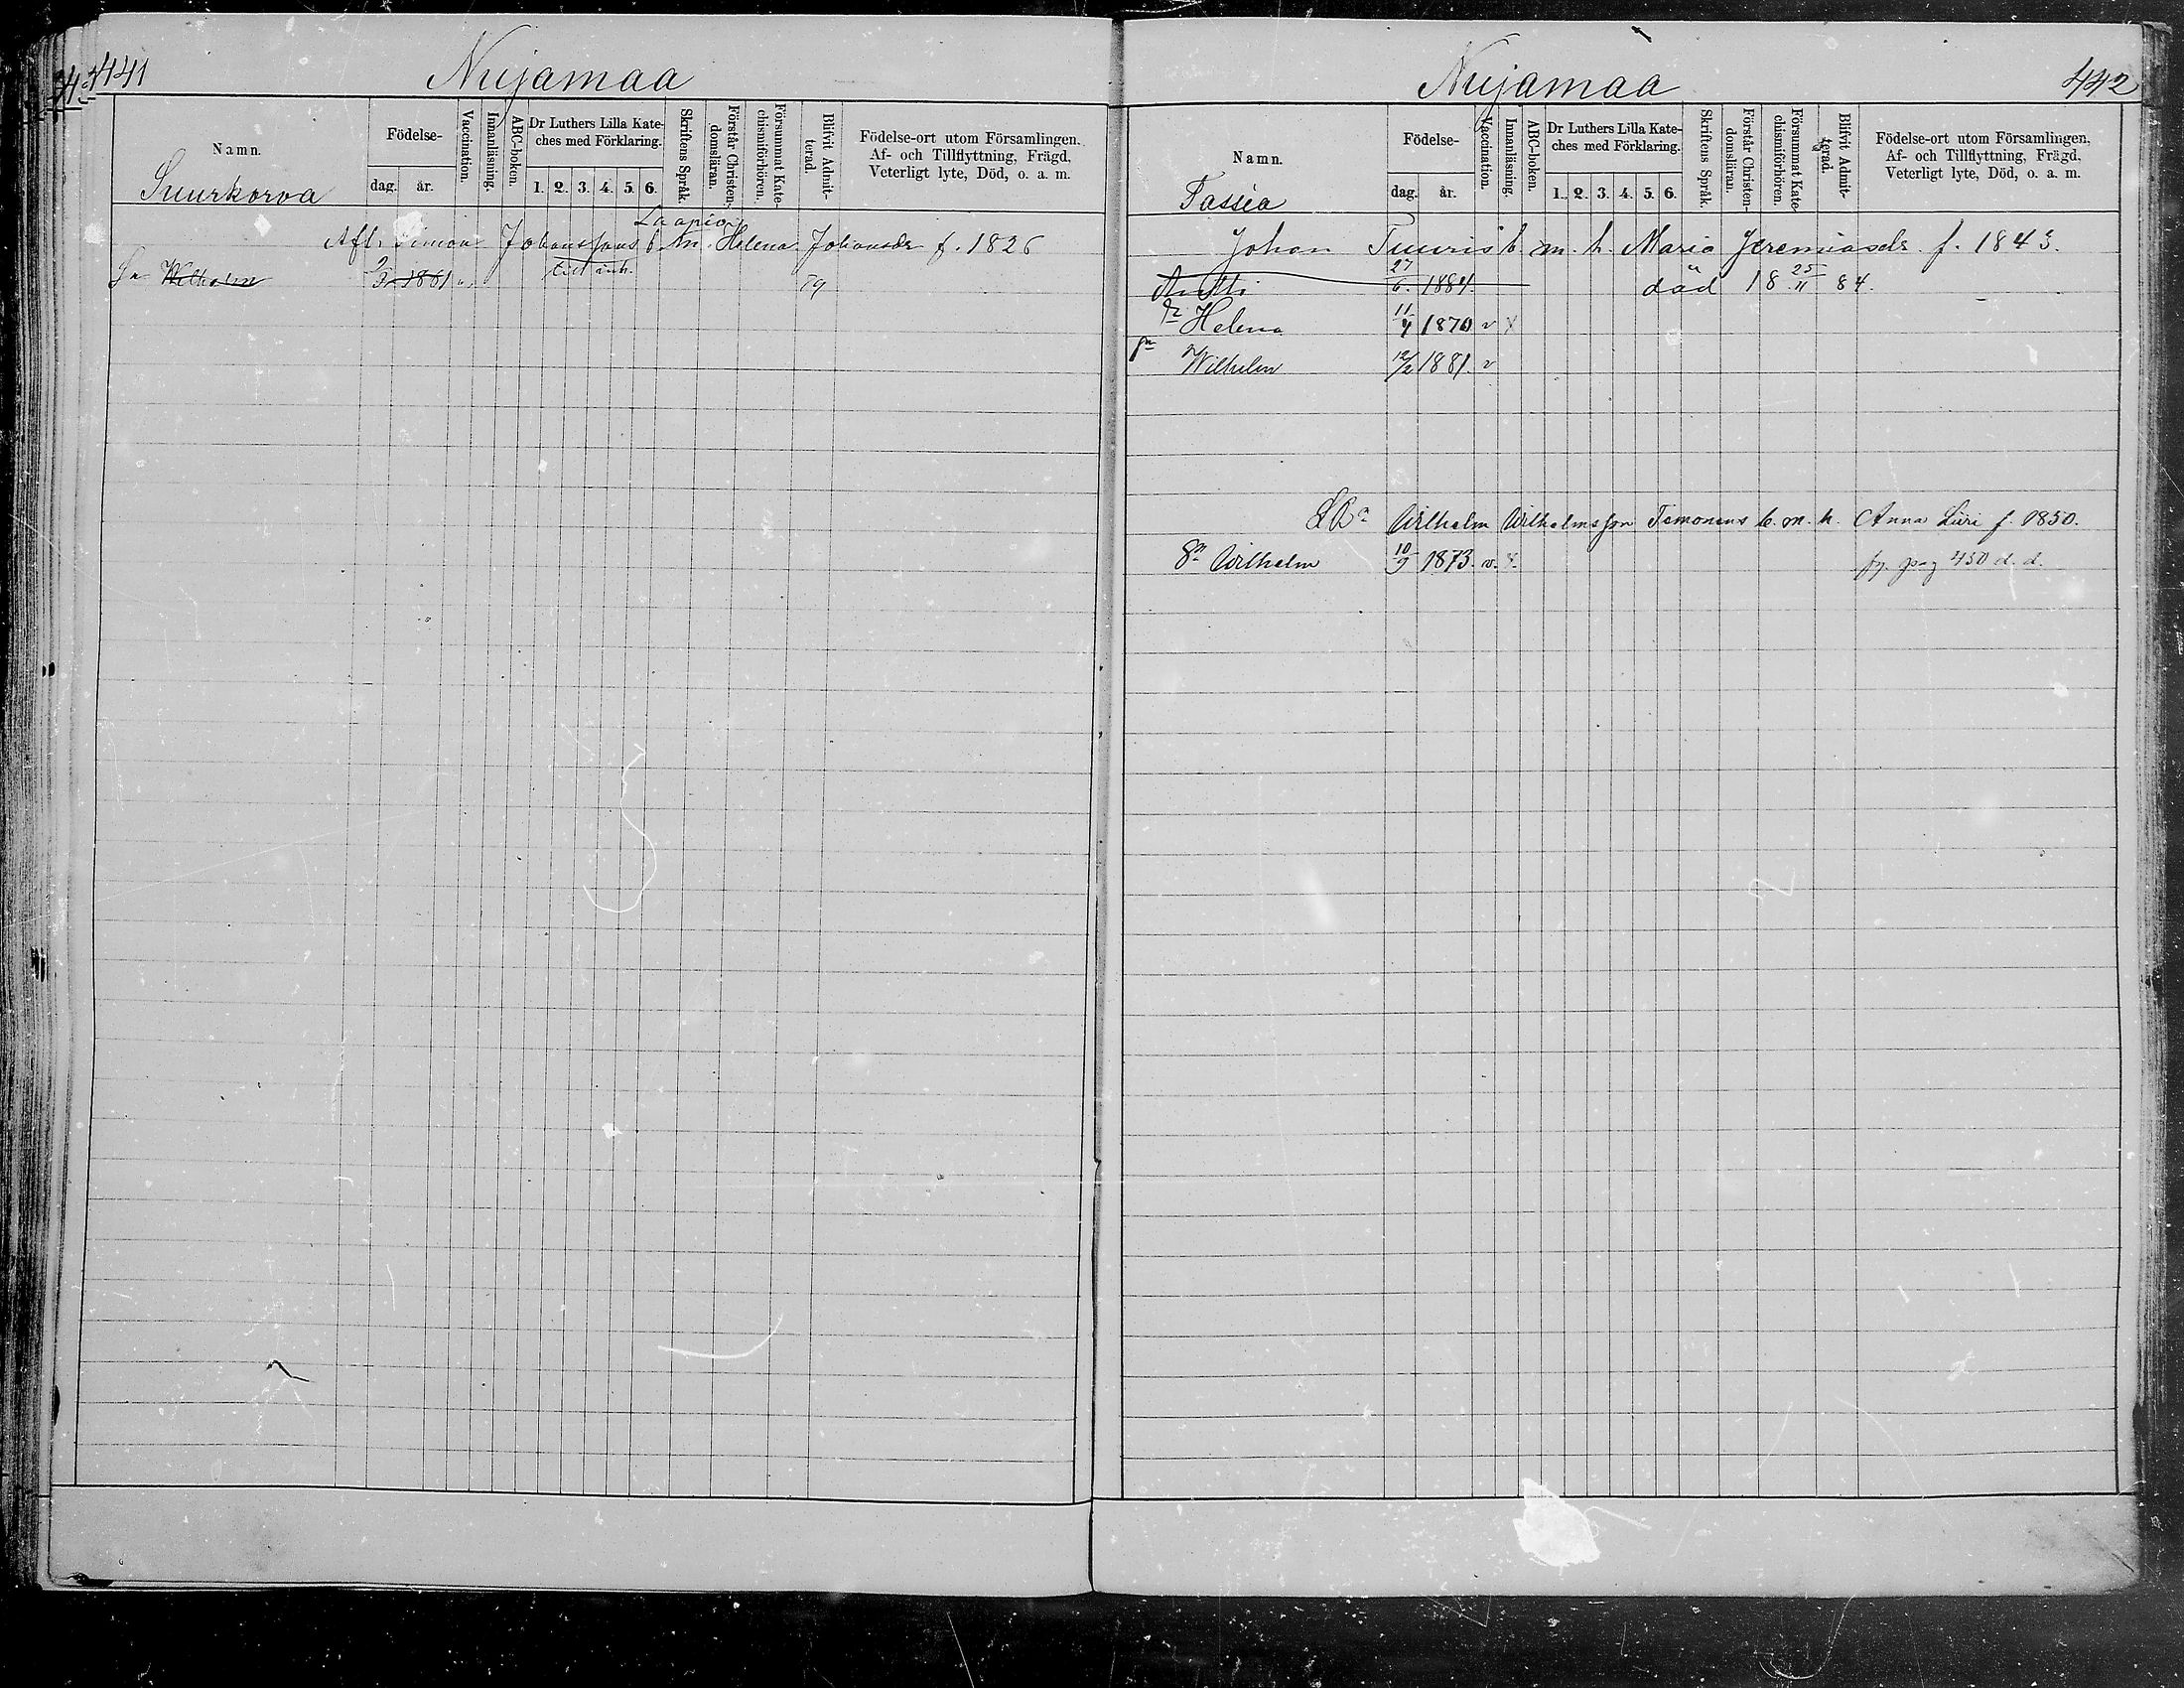 441
Nuijamaa
Namn.
Födelse-
dag. år.
Vaccination.
Innanläsning.
ABC-boken.
Dr Luthers Lilla Kate-
ches med Förklaring.
1. 2. 3. 4. 5. 6.
Skriftens Språk.
Förstår Christen-
domsläran.
Försummat Kate-
chismiförhören.
Blifvit Admit-
terad.
Födelse-ort utom Församlingen,
Af- och Tillflyttning, Frägd,
Veterligt lyte, Död, o. a. m.
Suurkorva
Laapio
Afl. Simon Johanssons b. m. Helena Johansdr f. 1826
Sn Wilhelm 1861 79
Nuijamaa
442
Namn.
Födelse-
dag. år.
Vaccination.
Innanläsning.
ABC-boken.
Dr Luthers Lilla Kate-
ches med Förklaring.
1. 2. 3. 4. 5. 6.
Skriftens Språk.
Förstår Christen-
domsläran.
Försummat Kate-
chismiförhören.
Blifvit Admit-
terad.
Födelse-ort utom Församlingen,
Af- och Tillflyttning, Frägd,
Veterligt lyte, Död, o. a. m.
Tassia
Johan Tuuris b. m. h. Maria Jeremiasdr. f. 1843.
Antti 27/6. 1884. död 18 25/11 84.
Helena 11/4 1870 v x
Wilhelm 12/2 1881. v
Wilhelm Wilhelmsson Temonens b. m. h. Anna Liiri f. 1850.
Sn Wilhelm 10/9 1873. v. x. fy. pag 450 d. d.